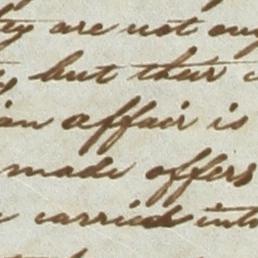 they are not any
but their
an affair is
made offers
carried into